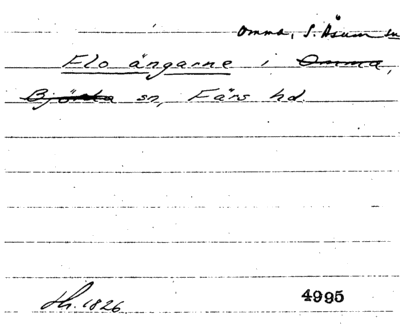 Omma, S. Åsum sn
Flo ängarne i Omma,
Björka sn, Färs hd.
Hh. 1826 4995